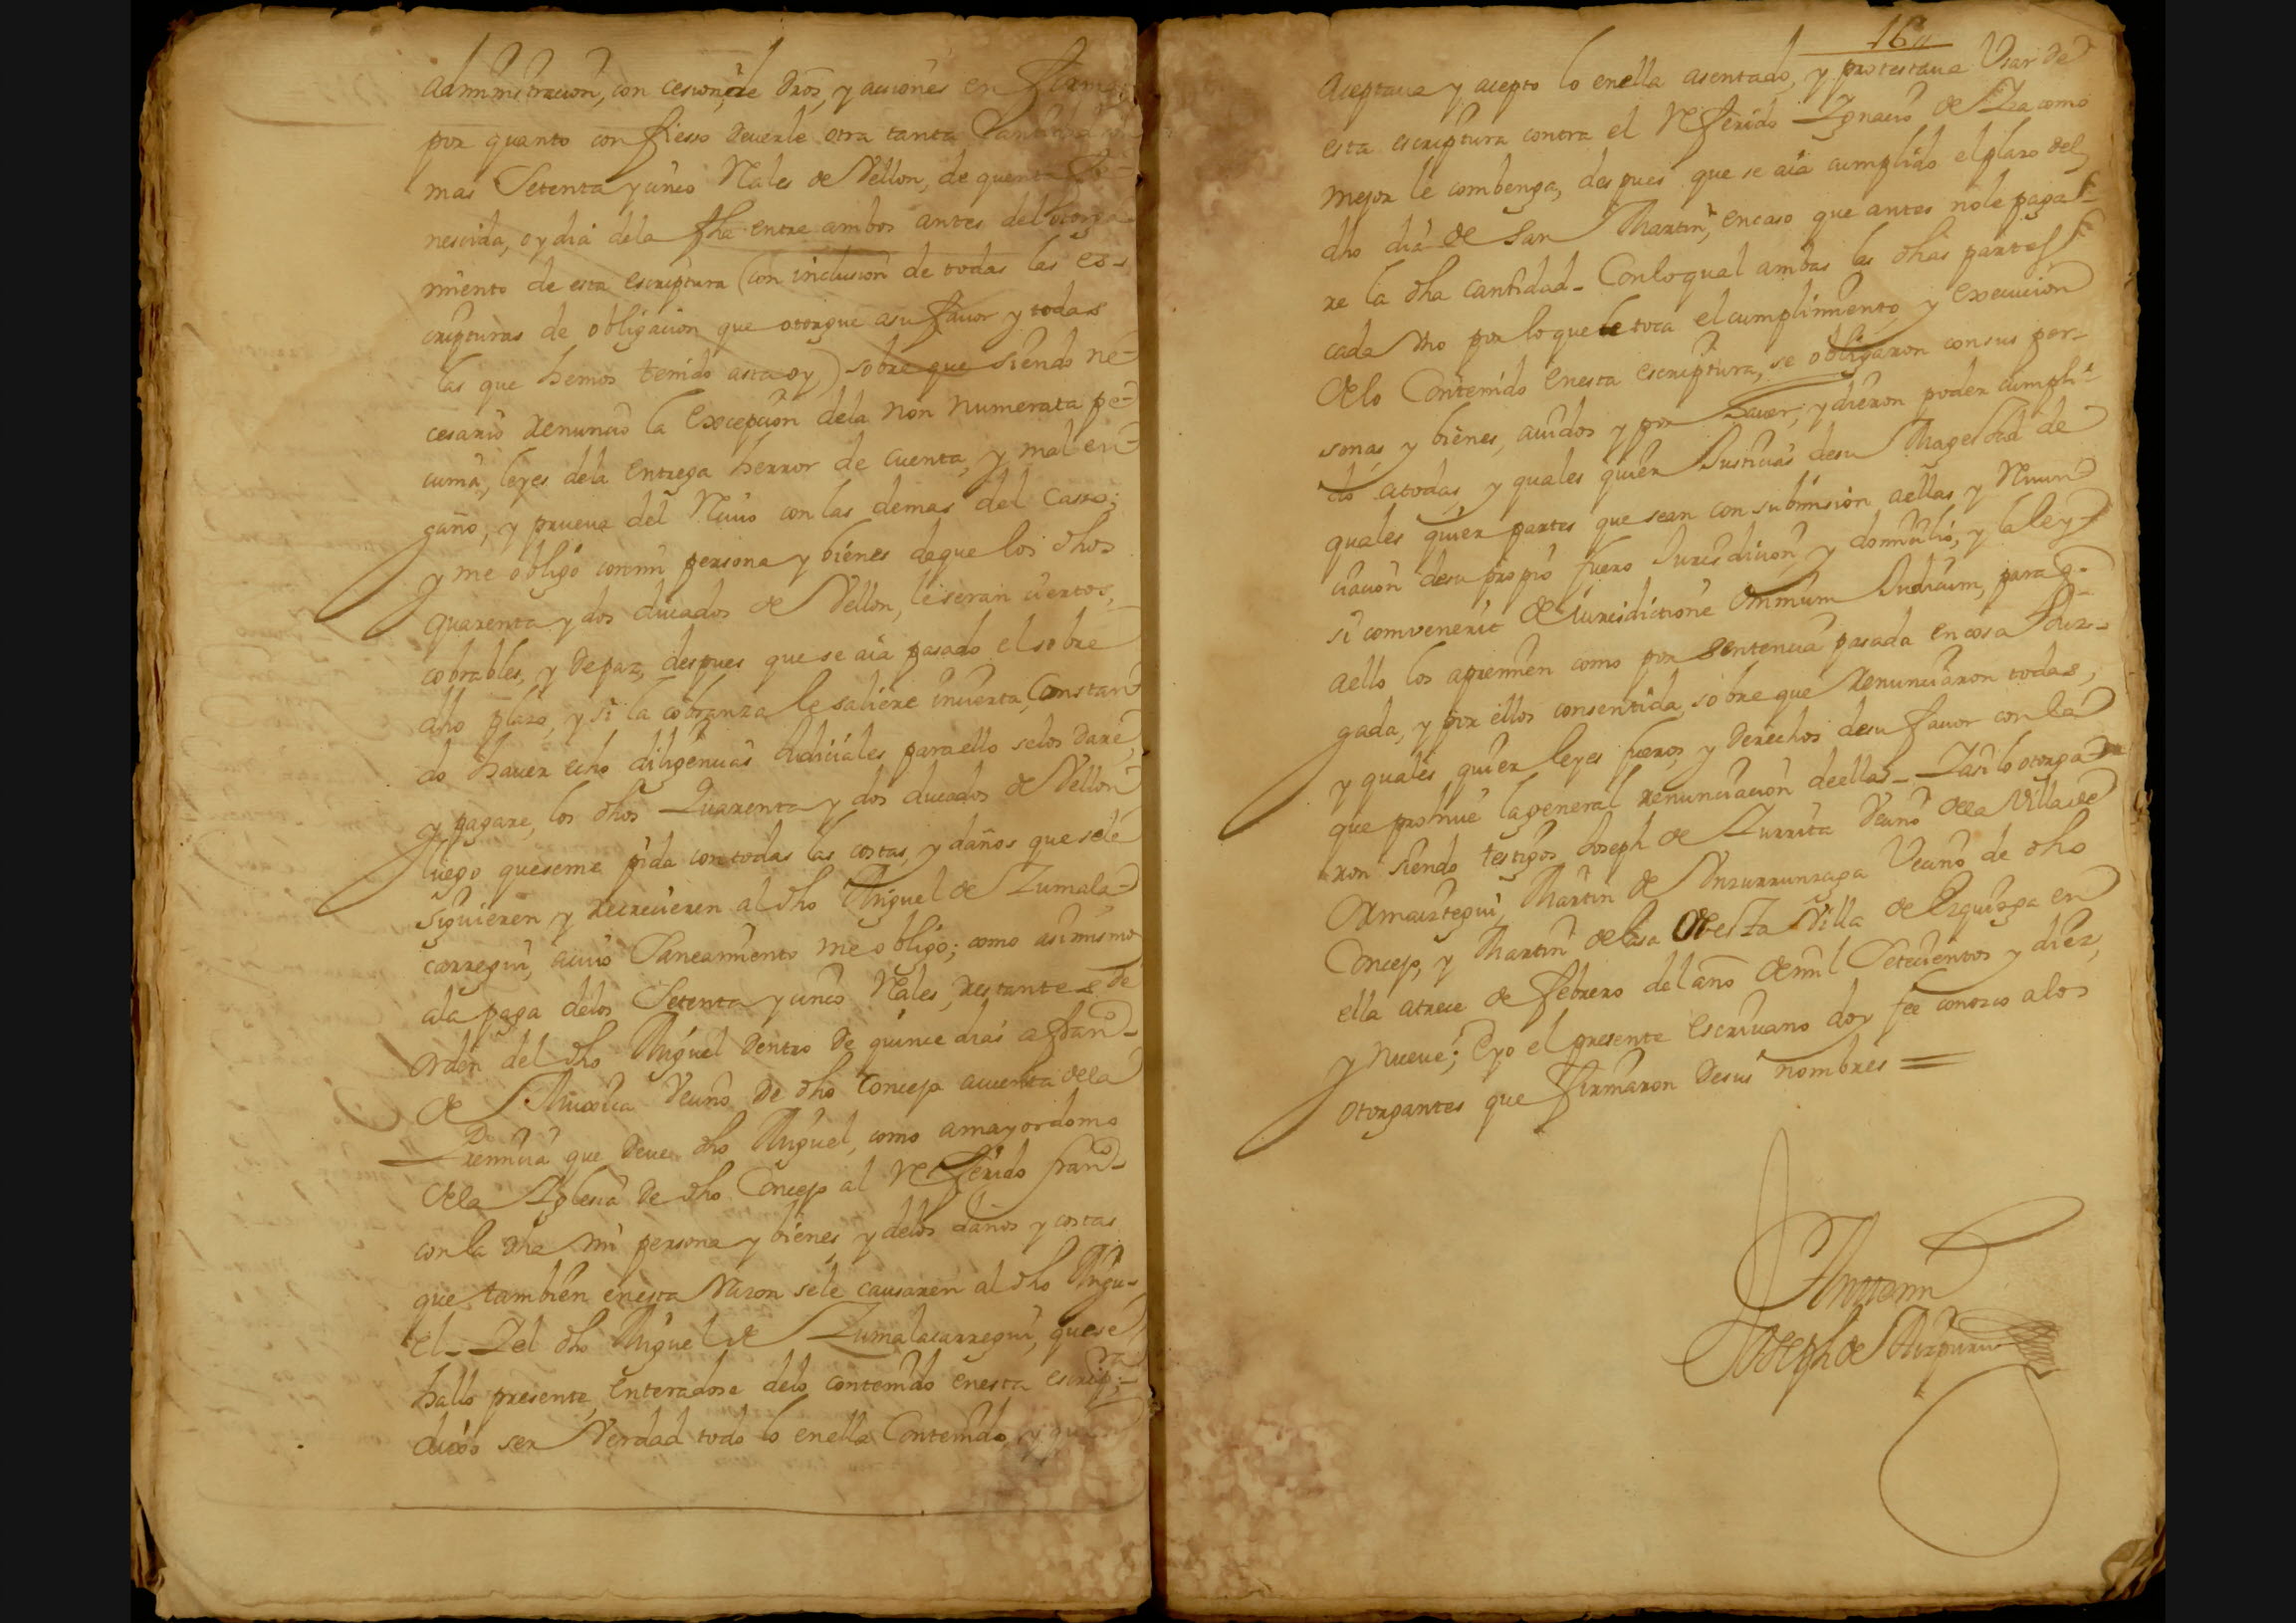 administracion, con cesion de dros, y acciones en forma
por quanto confiesso deuerle otra tanta Cantidad
mas Setenta y cinco Rales de Vellon, de quenta fe-
nescida, oy dia dela fha entre ambos antes del otorga-
miento de esta escriptura (con inclusion de todas las es-
cripturas de obligacion que otorgue asu fauor y todas
las que hemos tenido asta oy) sobre que siendo ne-
cesario renuncio la excepcion dela non numerata pe-
cunia, leyes dela entrega herror de cuenta, y mal en-
gaño, y prueua del Reciuo con las demas del Casso;
y me obligo con mi persona y bienes deque los dhos
quarenta y dos ducados de Vellon, le seran ciertos,
cobrables, y de paz, despues que se aia pasado el sobre
dho plazo, y si la cobranza le saliere incierta, Constan-
do hauer echo diligencias Judiciales para ello selos dare,
y pagare, los dhos Quarenta y dos ducados de Vellon
luego queseme pida con todas las costas, y daños que sele
siguieren y recrecieren al dho Miguel de Zumala-
carregui, acuio Saneamiento me obligo; como asimismo
ala paga delos Setenta y cinco Rales, restantes de
orden del dho Miguel dentro de quince dias a fran.co
de Muxica Vecino de dho Concejo acuenta dela
Remicia que deue dho Miguel, como amayordomo
dela Yglesia de dho Concejo al Referido fran.co
con la dha mi persona y bienes, y delos daños y costas
que tambien enesta Razon sele causaren al dho Migu-
el_ Y el dho Miguel de Zumalacarregui, quese
hallo presente, enteradose delo contenido enesta escrip.ra
dixo ser Verdad todo lo enella Contenido, y que
16
Aceptaua y acepto lo enella asentado, y protestaua Vsar de
esta escriptura contra el Referido Ygnacio de Yza como
mejor le combenga, despues que se aia cumplido el plazo del
dho dia de San Martin, encaso que antes nole paga-
re la dha cantidad_ Conloqual ambas las dhas partes
cada vno por loque le toca el cumplimiento, y execucion
delo Contenido enesta escriptura, se obligaron con sus per-
sonas y bienes, auidos y por hauer, y dieron poder cumpli-
do atodas, y quales quier Justicias desu Magestad de
quales quier partes que sean con submision aellas y Renun-
ciacion desu propio fuero Jurisdicion, y domicilio, y la ley
si convenerit de Jurisdictione omnium Judicum, para q.e
aello los apremien como por sentencia pasada en cosa Juz-
gada, y por ellos consentida, sobre que renunciaron todas,
y quales quier leyes fueros, y derechos desu fauor con la
que prohiue la general renunciacion deellas_ Y asi lo otorga-
ron siendo testigos Joseph de Zurrita Vecino dela Villa de
Ormaiztegui, Martin de Vnzurrunzaga Vecino de dho
Concejo, y Martin de Lasa de esta Villa de Ezquioga en
ella atrece de febrero del año demil Setecientos y diez,
y nueue; Eyo el presente escriuano doy fee conozco alos
otorgantes que firmaron desus nombres =
Ante mi
Joseph de Aizpuru